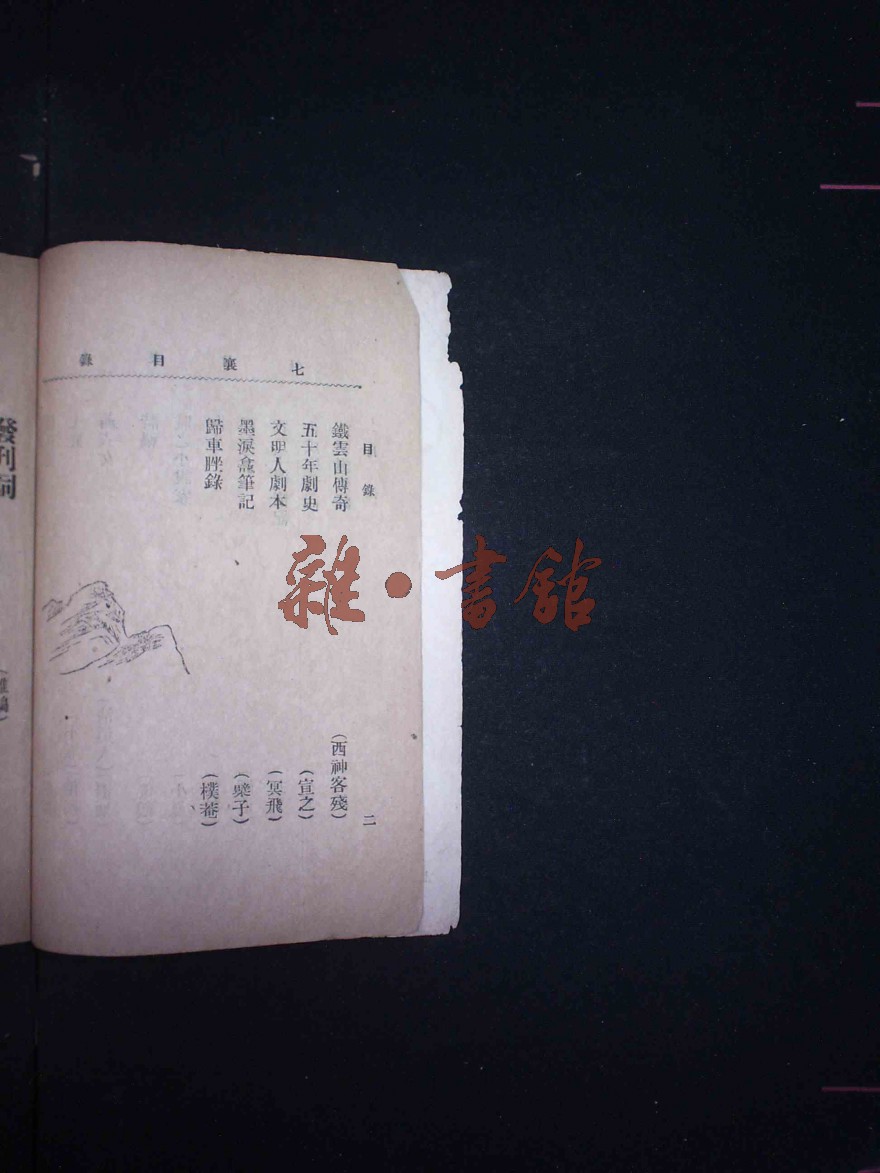 七襄目錄
目錄 二
鐵雲山傳奇 (西神客殘)
五十年劇史 (宣之)
文明人劇本 (冥飛)
墨淚龕筆記 (檗子)
歸車脞錄 (樸菴)
發刊詞
雜·書館